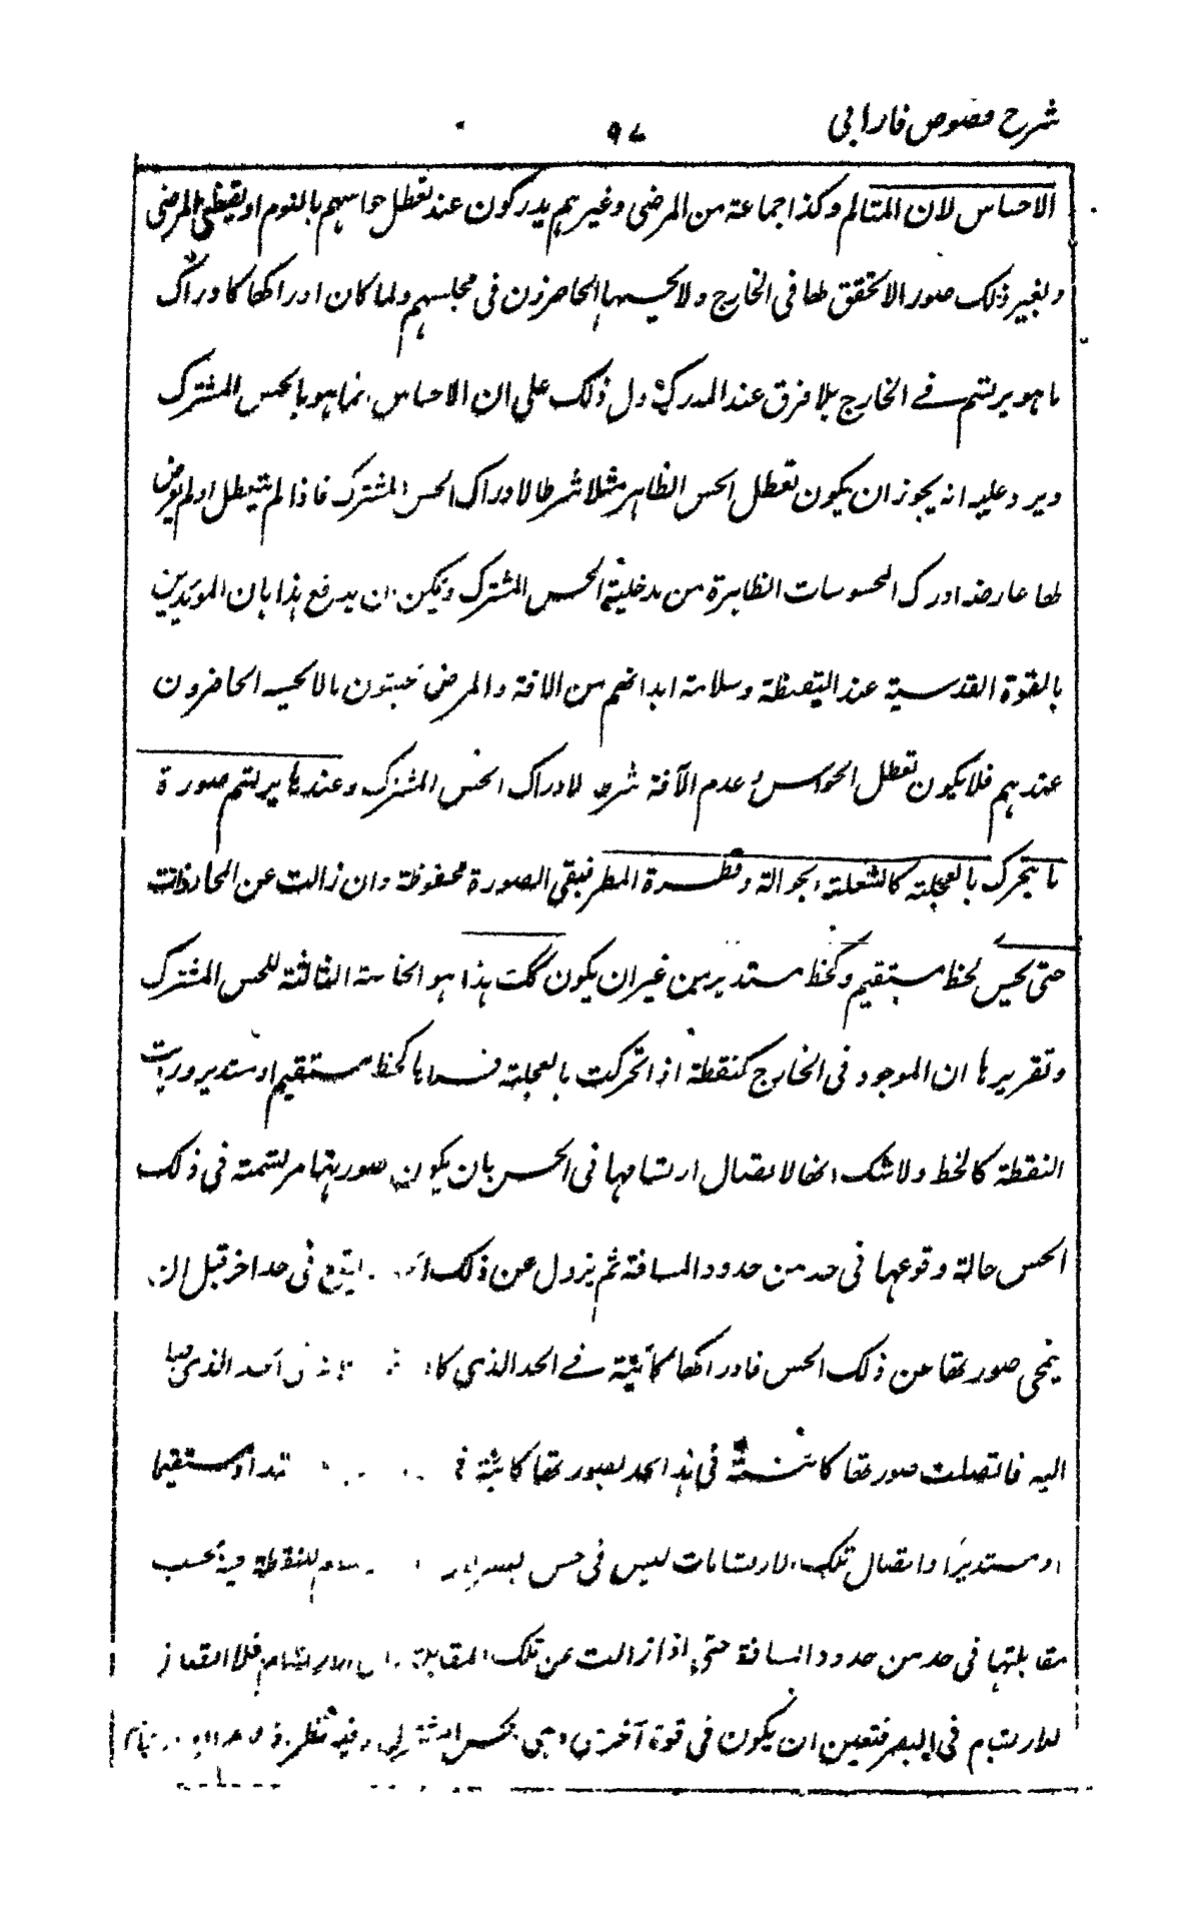 شرح فصوص فارابی
٩٧
الاحساس لان المتالم وكذا جماعة من المرضى وغيرهم يدركون عند تعطل حواسهم بالنوم او يقظى المرضى
ولغير ذلك صور الا تحقق لها فى الخارج ولا يحسها الحاضرون فى مجلسهم ولما كان ادراكها كادراك
ما هو يرتسم فے الخارج بلا فرق عند المدرك دل ذلك على ان الاحساس انما هو بالحس المشترك
ويرد عليه انه يجوز ان يكون تعطل الحس الظاهر مثلا شرطا لادراك الحس المشترك فاذا لم يتعطل او لم يعرض
لها عارضه ادرك المحسوسات الظاهرة من مدخلية الحس المشترك ويمكن ان يدفع هذا بان المويدين
بالقوة القدسية عند اليقظة وسلامة ابدانهم من الافة والمرض يثبتون مالا يحسه الحاضرون
عندهم فلا يكون تعطل الحواس وعدم الآفة شرط لادراك الحس المشترك وعندها يرتسم صورة
ما يتحرك بالعجلة كالشعلة الجوالة وقطرة المطر فيبقى الصورة محفوظة وان زالت عن المحاذات
حتى يحس كخط مستقيم وكخط مستدير من غير ان يكون كك هذا هو الخاسة الثالثة للحس المشترك
وتقريرها ان الموجود فى الخارج كنقطة اذا تحركت بالعجلة فسراها كخط مستقيم او مستدير ورايت
النقطة كالخط ولا شك انها لاتصال ارتسامها فى الحس بان يكون صورتها مرتسمة فى ذلك
الحس حالة وقوعها فى حد من حدود المسافة ثم يزول عن ذلك يقع فى حد اخر قبل ان
ينمحى صورتها عن ذلك الحس فادراكها كائنة فے الحد الذى الحد الذى صا
اليه فاتصلت صورتها كائنة فى هذا الحد بصورتها كائنة مستقيما
او مستديرا واتصال تلك الارتسامات ليس فى حس البصر للنقطة فيه بحسب
مقابلتها فى حد من حدود المسافة حتى اذا زالت عن تلك المقابلة زال الارتسام فلا اتصال
للارتسام فى البصر فتعين ان يكون فى قوة آخرى وهى الحس المشترك وفيه نظر